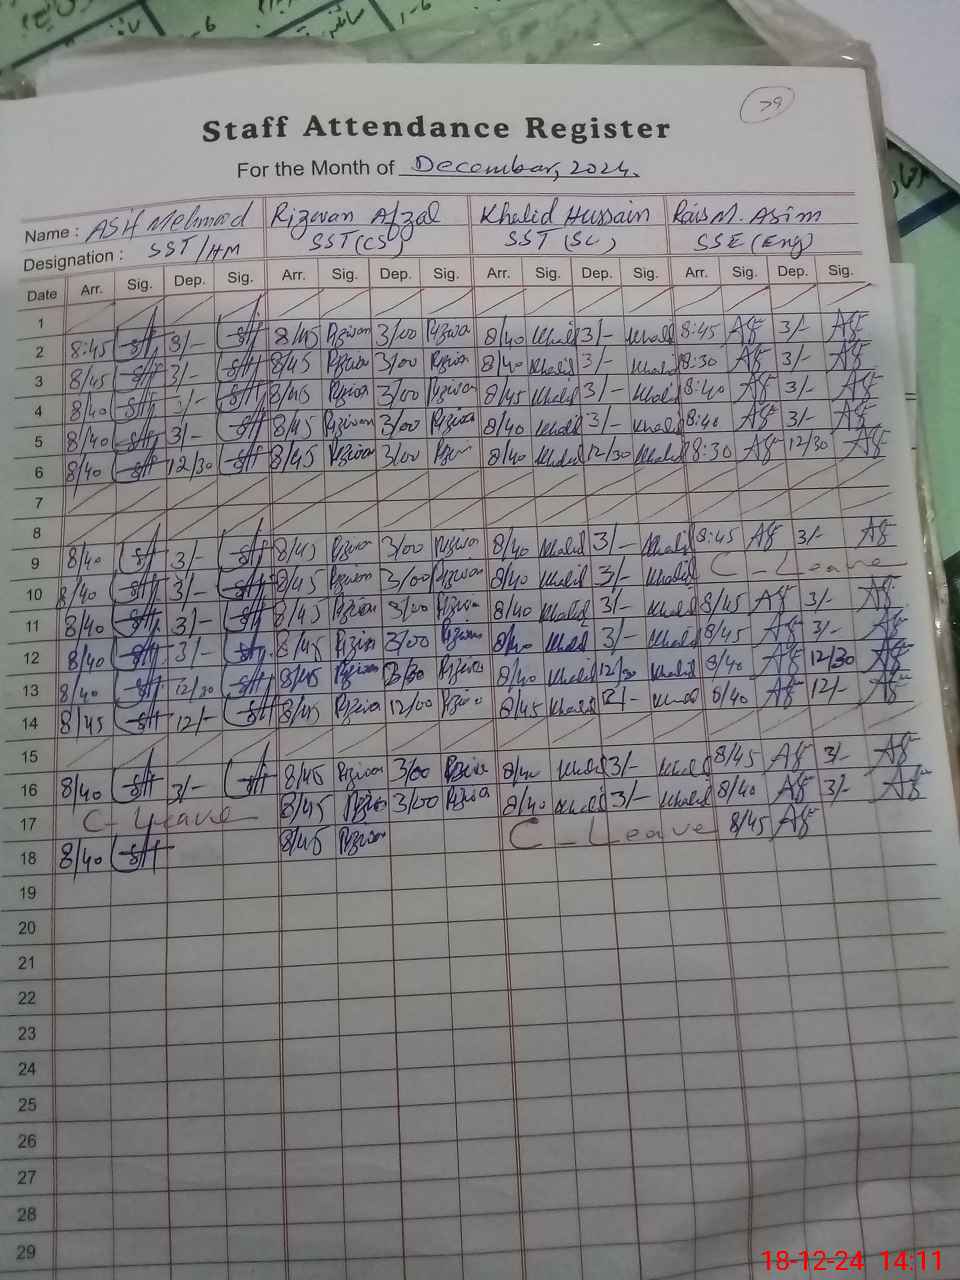 79
Staff Attendance Register
For the Month of December, 2024.
Name : Asif Mehmood Rizwan Afzal Khalid Hussain Rais M. Asim
Designation : SST/HM SST(CS) SST(Sc) SSE(Eng)
Date Arr. Sig. Dep. Sig. Arr. Sig. Dep. Sig. Arr. Sig. Dep. Sig. Arr. Sig. Dep. Sig.
1
2 8:45 3/- 8/45 Rizwan 3/00 Rizwan 8/40 Khalid 3/- Khalid 8:45 3/-
3 8/45 3/- 8/45 Rizwan 3/00 Rizwan 8/40 Khalid 3/- Khalid 8:30 3/-
4 8/40 3/- 8/45 Rizwan 3/00 Rizwan 8/45 Khalid 3/- Khalid 8:40 3/-
5 8/40 3/- 8/45 Rizwan 3/00 Rizwan 8/40 Khalid 3/- Khalid 8:40 3/-
6 8/40 12/30 8/45 Rizwan 3/00 Rizwan 8/40 Khalid 12/30 Khalid 8:30 12/30
7
8
9 8/40 3/- 8/45 Rizwan 3/00 Rizwan 8/40 Khalid 3/- Khalid 8:45 3/-
10 8/40 3/- 8/45 Rizwan 3/00 Rizwan 8/40 Khalid 3/- Khalid C-Leave
11 8/40 3/- 8/45 Rizwan 3/00 Rizwan 8/40 Khalid 3/- Khalid 8/45 3/-
12 8/40 3/- 8/45 Rizwan 3/00 Rizwan 8/40 Khalid 3/- Khalid 8/45 3/-
13 8/40 12/30 8/45 Rizwan Rizwan 8/40 Khalid 12/30 Khalid 8/40 12/30
14 8/45 12/- 8/45 Rizwan 12/00 Rizwan 8/45 Khalid Khalid 8/40 12/-
15
16 8/40 3/- 8/45 Rizwan 3/00 Rizwan 8/40 Khalid 3/- Khalid 8/45 3/-
17 C-Leave 8/45 Rizwan 3/00 Rizwan 8/40 Khalid 3/- Khalid 8/40 3/-
18 8/40 8/45 Rizwan C-Leave 8/45
19
20
21
22
23
24
25
26
27
28
29
18-12-24 14:11